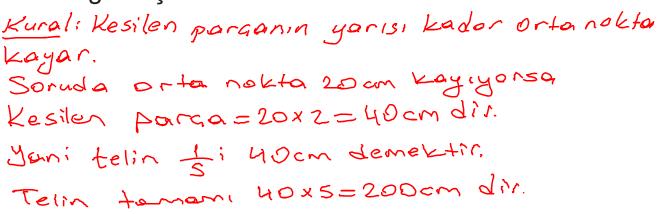 Kural: Kesilen parçanın yarısı kadar orta nokta
kayar.
Soruda orta nokta 20 cm kayıyorsa
Kesilen parça = 20 x 2 = 40cm dir.
Yani telin 1/5 i 40cm demektir.
Telin tamamı 40 x 5 = 200cm dir.